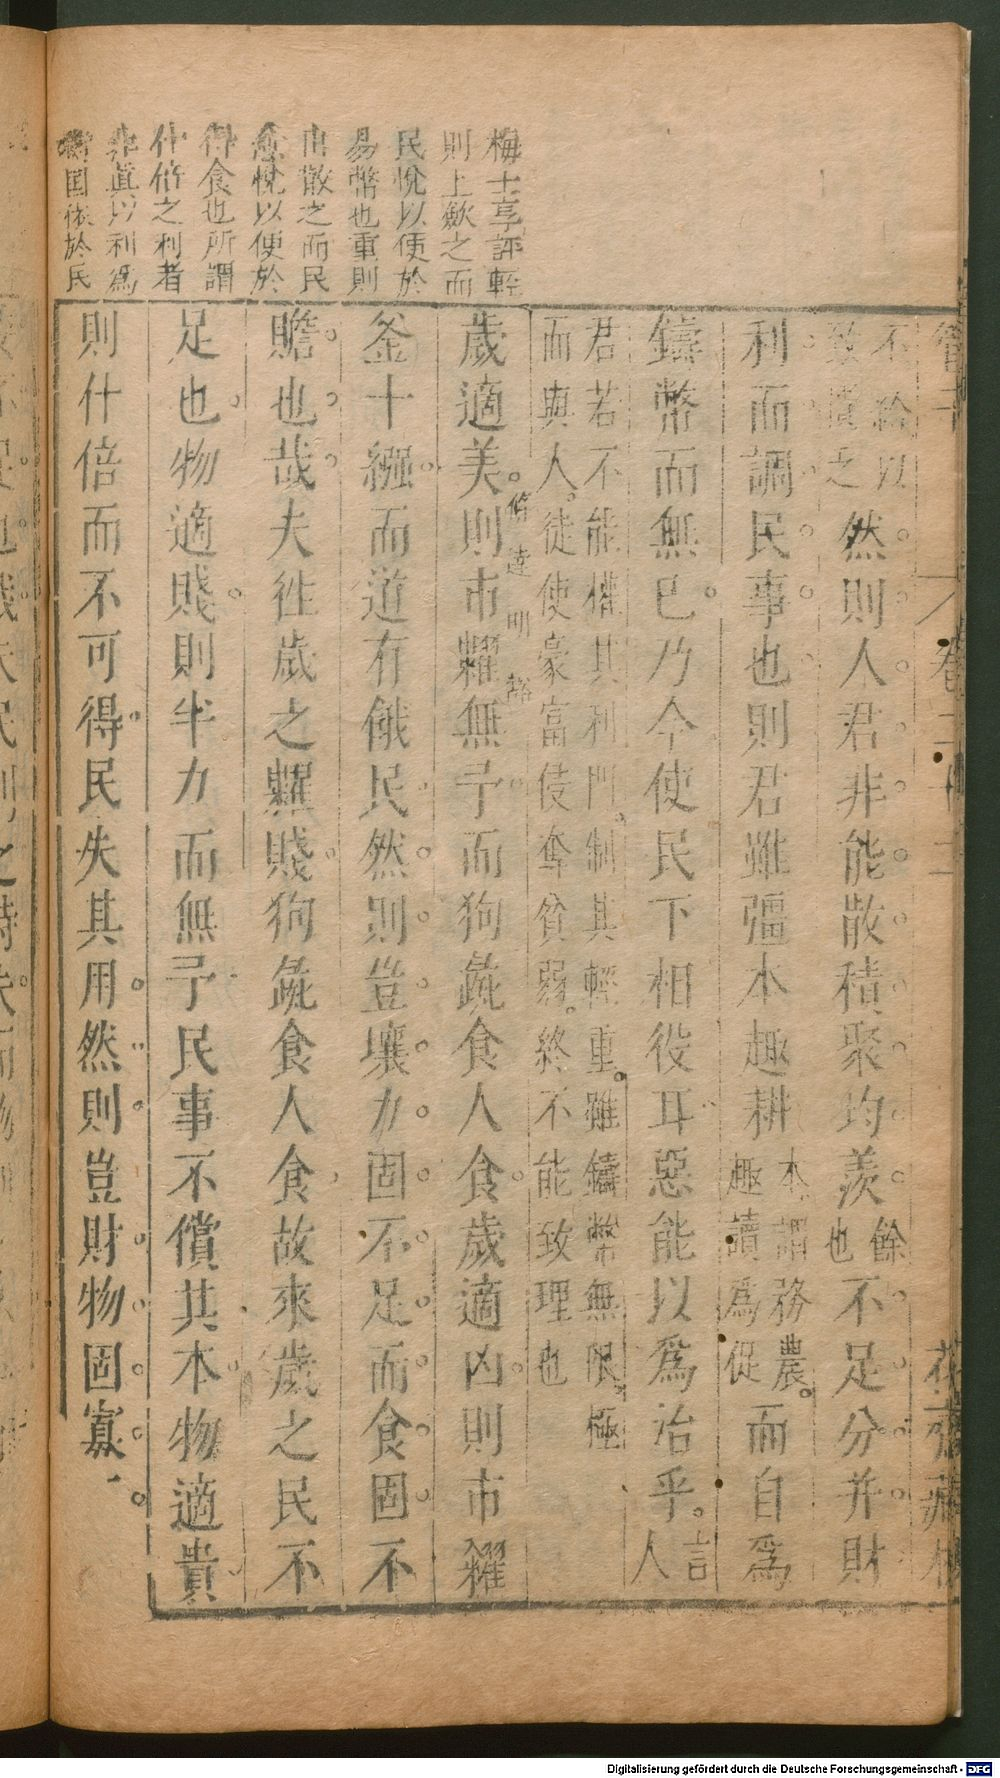 管子 卷二十二 花齋藏板
不給以
致貴之
然則人君非能散積聚均羨
餘
也
不足分并財
利而調民事也則君雖彊本趣耕
本謂務農
趣讀為促
而自爲
鑄幣而無已乃今使民下相役耳惡能以爲治乎
言
人
君若不能權其利門制其輕重雖鑄幣無限極
而與人徒使豪富侵奪貧弱終不能致理也
歲適美則市糶無予而狗彘食人食歲適凶則市糴
釜十繦而道有餓民然則豈壤力固不足而食固不
贍也哉夫往歲之糶賤狗彘食人食故來歲之民不
足也物適賤則半力而無予民事不償其本物適貴
則什倍而不可得民失其用然則豈財物固寡
脩遠
明
梅士享評輕
則上歛之而
民悅以便於
易幣也重則
出散之而民
愈悅以便於
得食也所謂
什倍之利者
非眞以利爲
國依於民
Digitalisierung gefördert durch die Deutsche Forschungsgemeinschaft - DFG